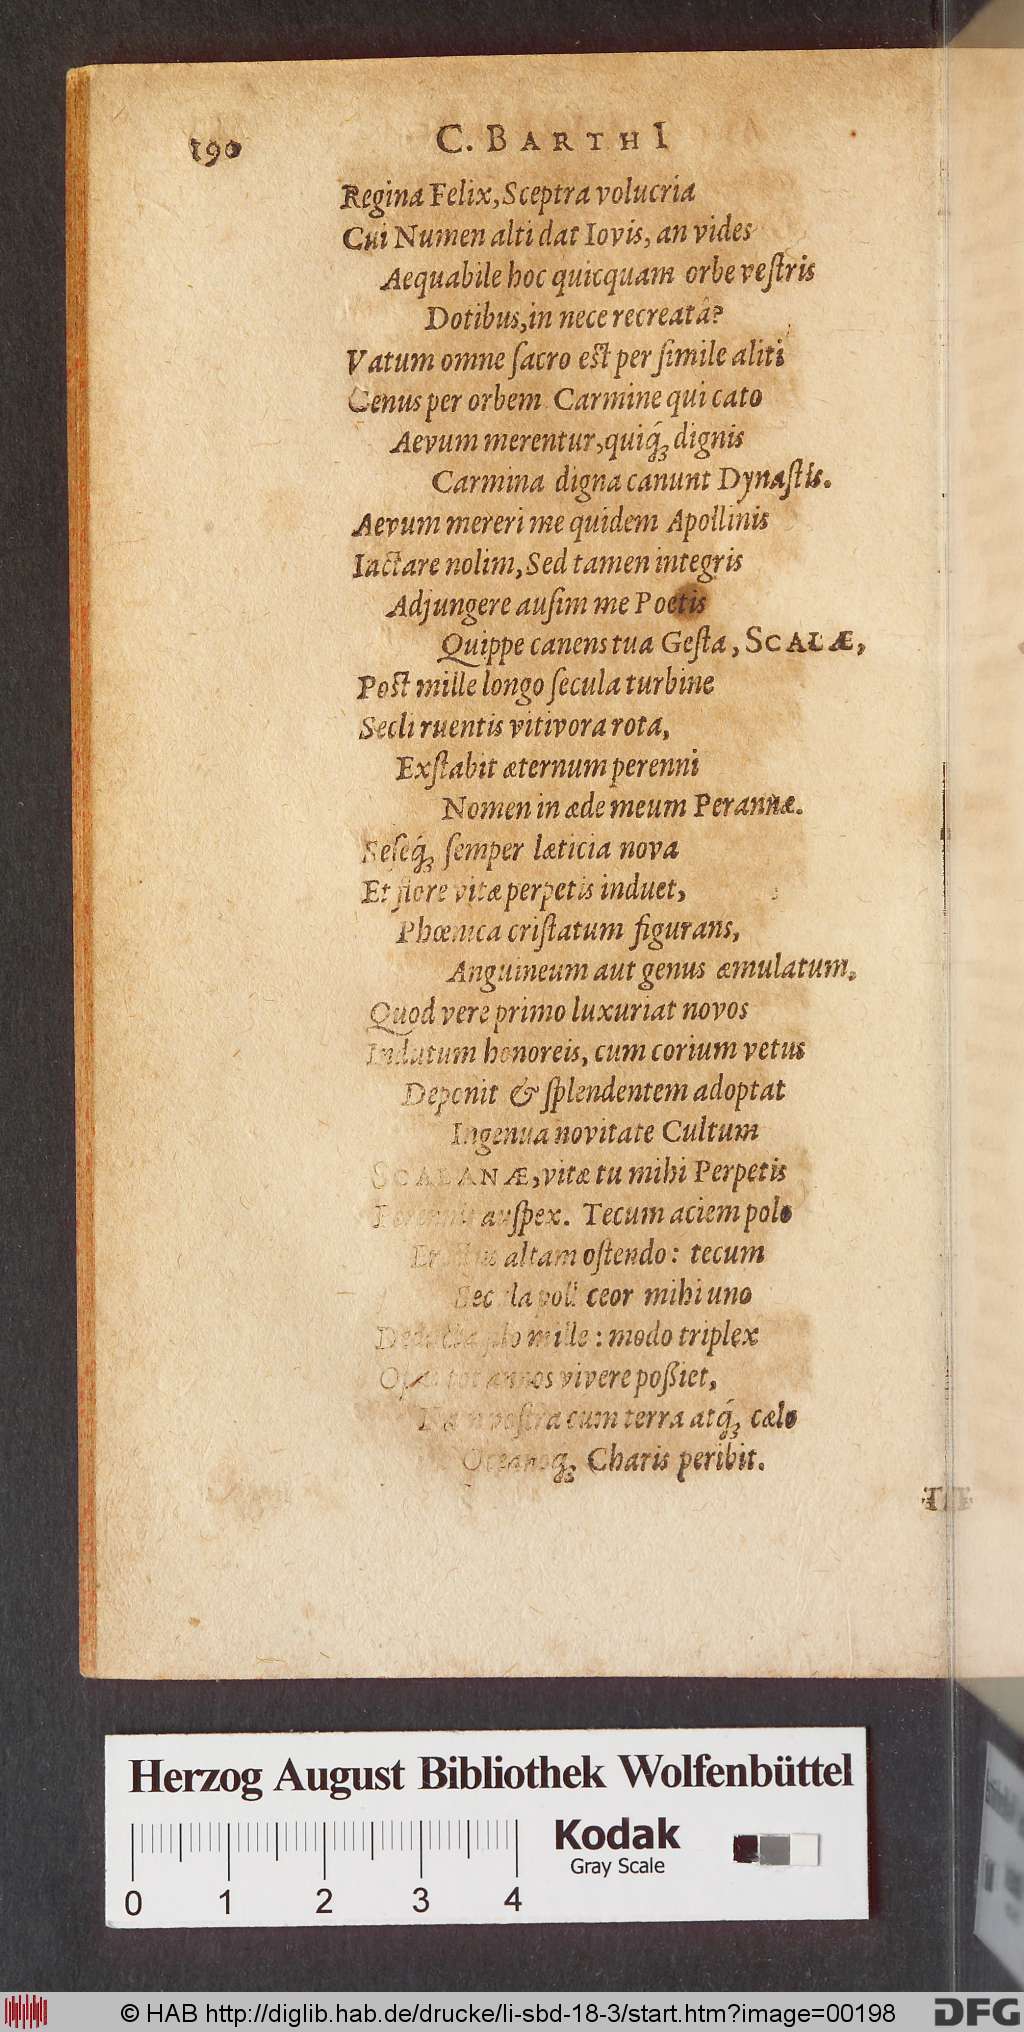 190 C. BARTHI
Regina Felix, Sceptra volucria
Cui Numen alti dat Iovis, an vides
Aequabile hoc quicquam orbe veſtris
Dotibus, in nece recreatâ?
Vatum omne ſacro eſt per ſimile aliti
Genus per orbem Carmine qui cato
Aevum merentur, quiq́ꝫ dignis
Carmina digna canunt Dynaſtis.
Aevum mereri me quidem Apollinis
Iactare nolim, Sed tamen integris
Adjungere auſim me Poetis
Quippe canens tua Geſta, SCALÆ,
Poſt mille longo ſecula turbine
Secli ruentis vitivora rota,
Exſtabit æternum perenni
Nomen in æde meum Perannæ.
Seſeq́ꝫ ſemper læticia nova
Et flore vitæ perpetis induet,
Phœnica criſtatum figurans,
Anguineum aut genus æmulatum.
Quod vere primo luxuriat novos
Indutum honoreis, cum corium vetus
Deponit & ſplendentem adoptat
Ingenua novitate Cultum
SCALANÆ, vitæ tu mihi Perpetis
Perennis auſpex. Tecum aciem polo
altam oſtendo: tecum
Secula polliceor mihi uno
mille: modo triplex
tot annos vivere poßiet,
noſtra cum terra atq́ꝫ cælo
Oceanoqꝫ Charis peribit.
Herzog August Bibliothek Wolfenbüttel
Kodak
Gray Scale
0 1 2 3 4
© HAB http://diglib.hab.de/drucke/li-sbd-18-3/start.htm?image=00198
DFG